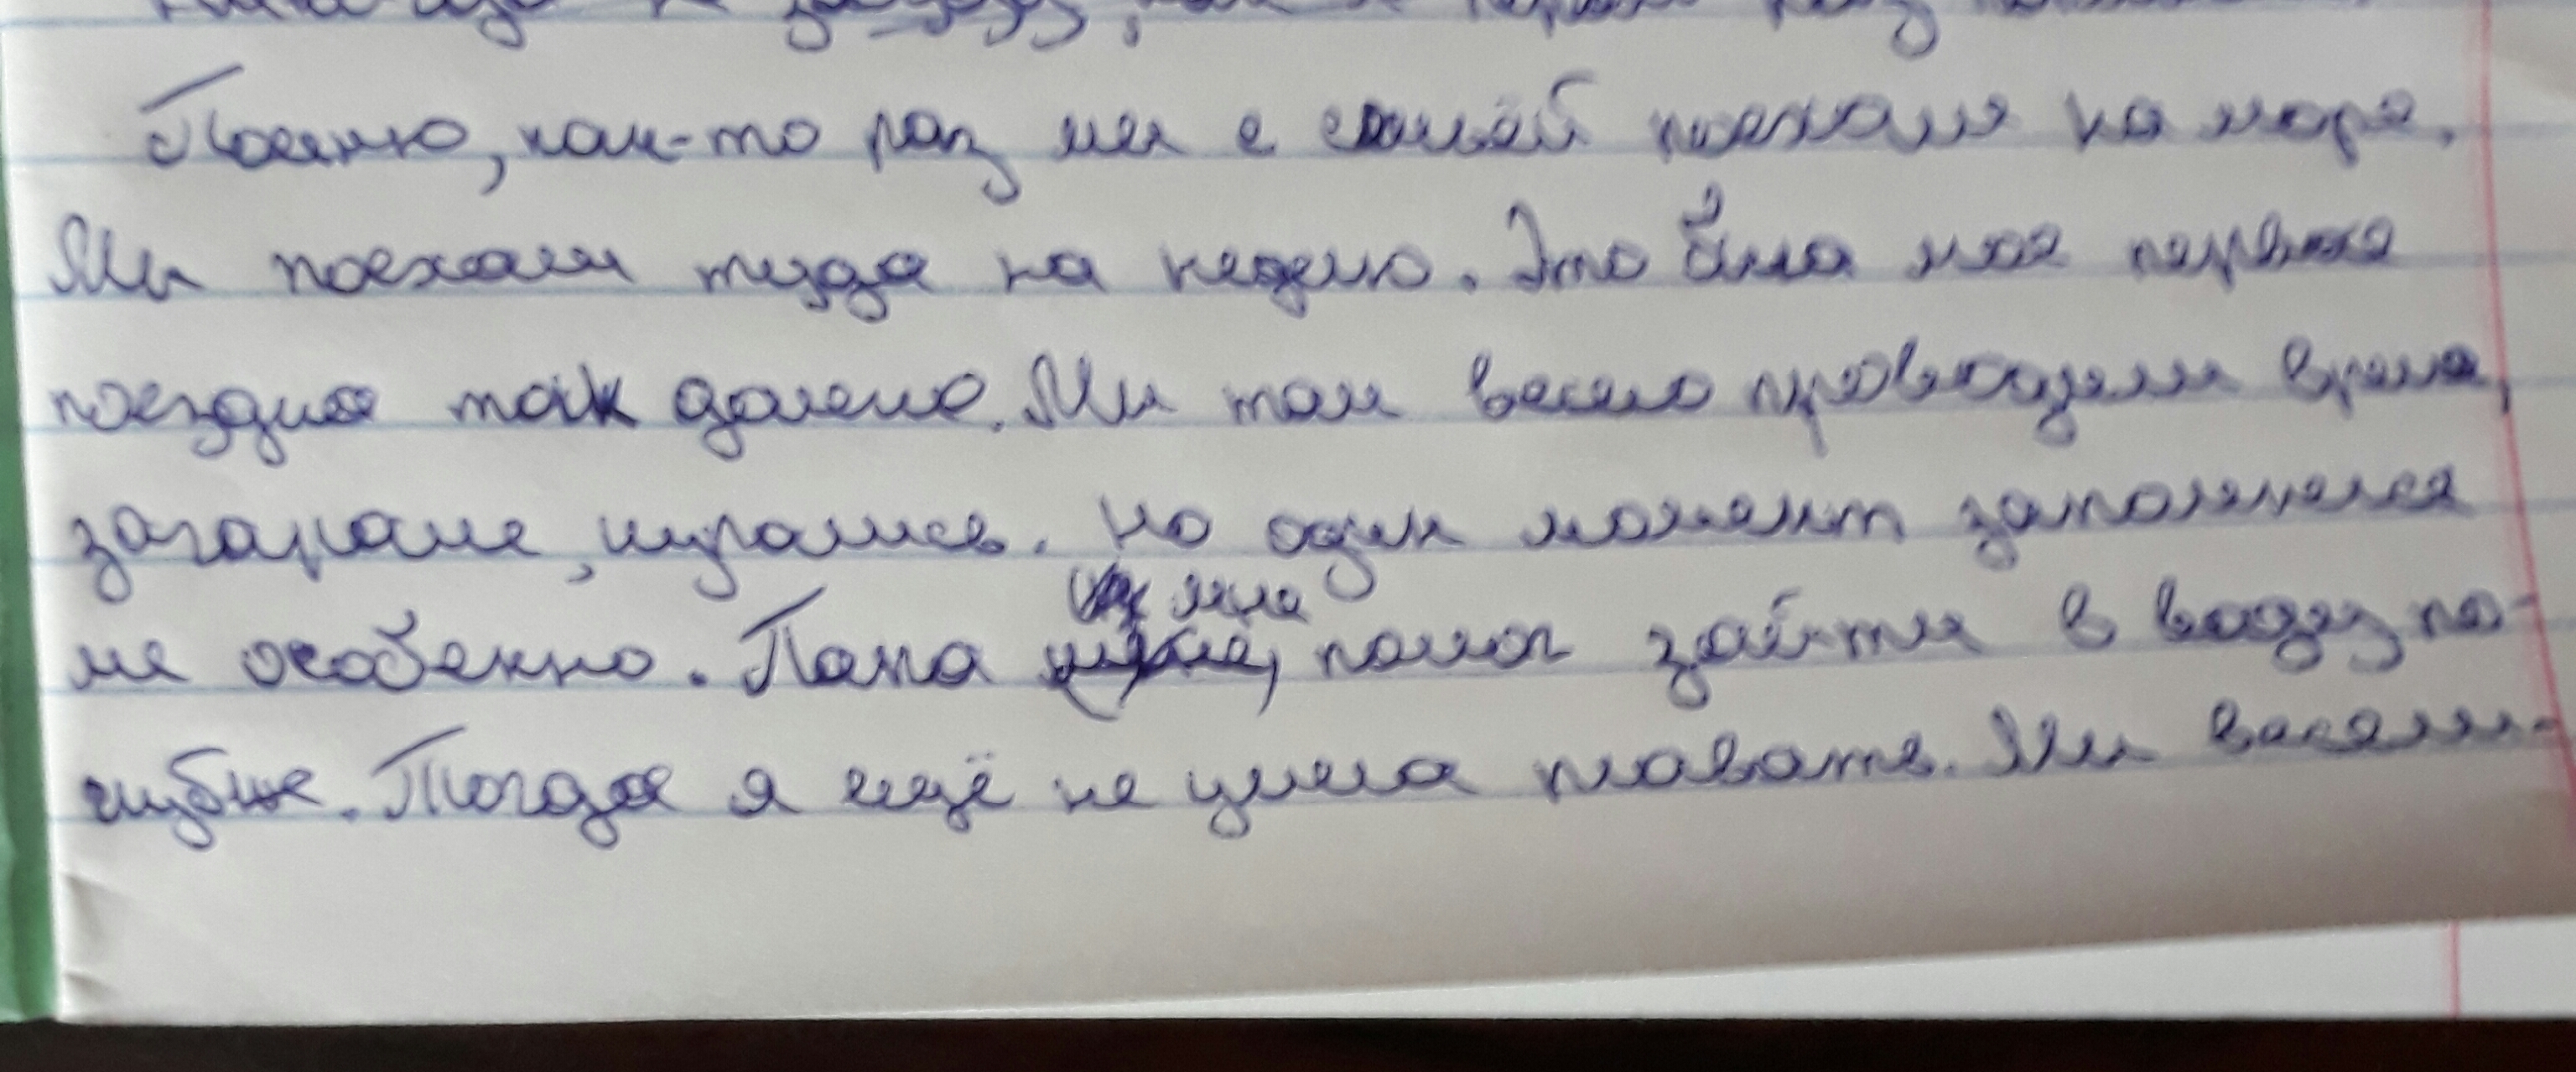 Помню, как-то раз мы с семьёй поехали на море.
Мы поехали туда на неделю. Это была моя первая
поездка так далеко. Мы там весело проводили время,
загарали, игрались. Но один момент запомнился
мне особенно. Папа мне помог зайти в воду по-
глубже. Тогда я ещё не умела плавать. Мы весели-